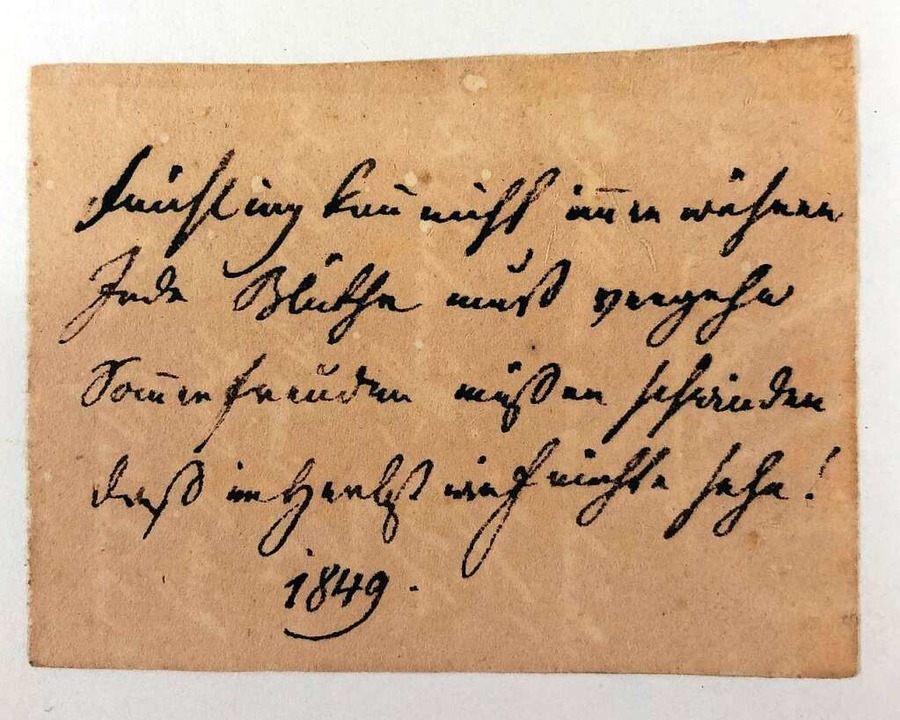 Frühling kan̄ nicht im̄er währen
Jede Blüthe muß vergehn
Som̄erfreuden müßen schwinden
daß im Herbst wir Früchte sehn!
1849.